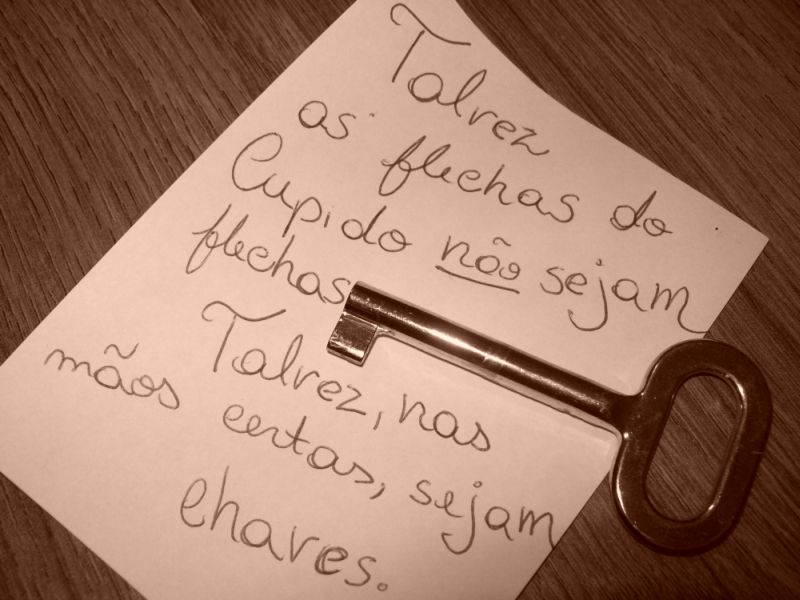 Talvez
as flechas do
Cupido não sejam
flechas
Talvez, nas
mãos certas, sejam
chaves.